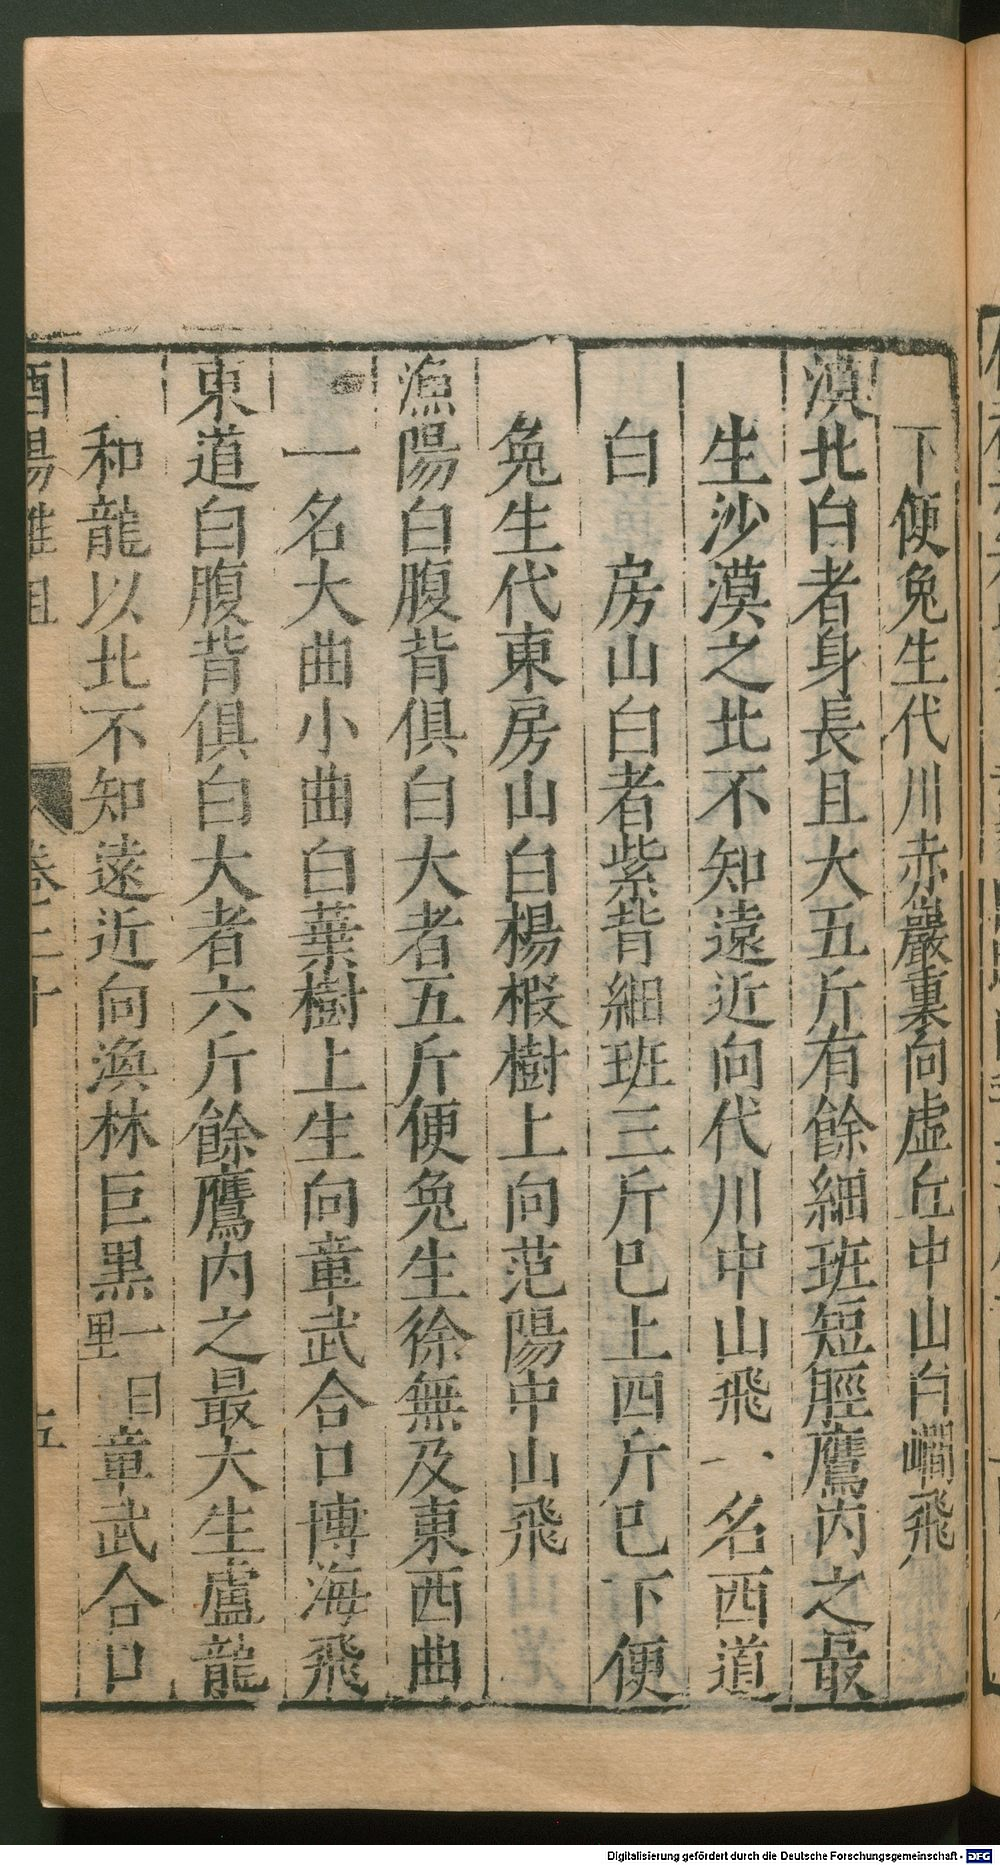 下便兔生代川赤巖重向虛丘中山白㵎飛
漠北白者身長且大五斤有餘細班短脛鷹內之最
生沙漠之北不知遠近向代川中山飛一名西道
白　房山白者紫背細班三斤巳上四斤巳下便
兔生代東房山白楊椵樹上向范陽中山飛
漁陽白腹背俱白大者五斤便兔生徐無及東西曲
一名大曲小曲白葉樹上生向章武合口博海飛
東道白腹背俱白大者六斤餘鷹內之最大生盧龍
和龍以北不知遠近向渙林巨黑一曰里章武合口
酉陽雜俎　卷二十　五
Digitalisierung gefördert durch die Deutsche Forschungsgemeinschaft - DFG